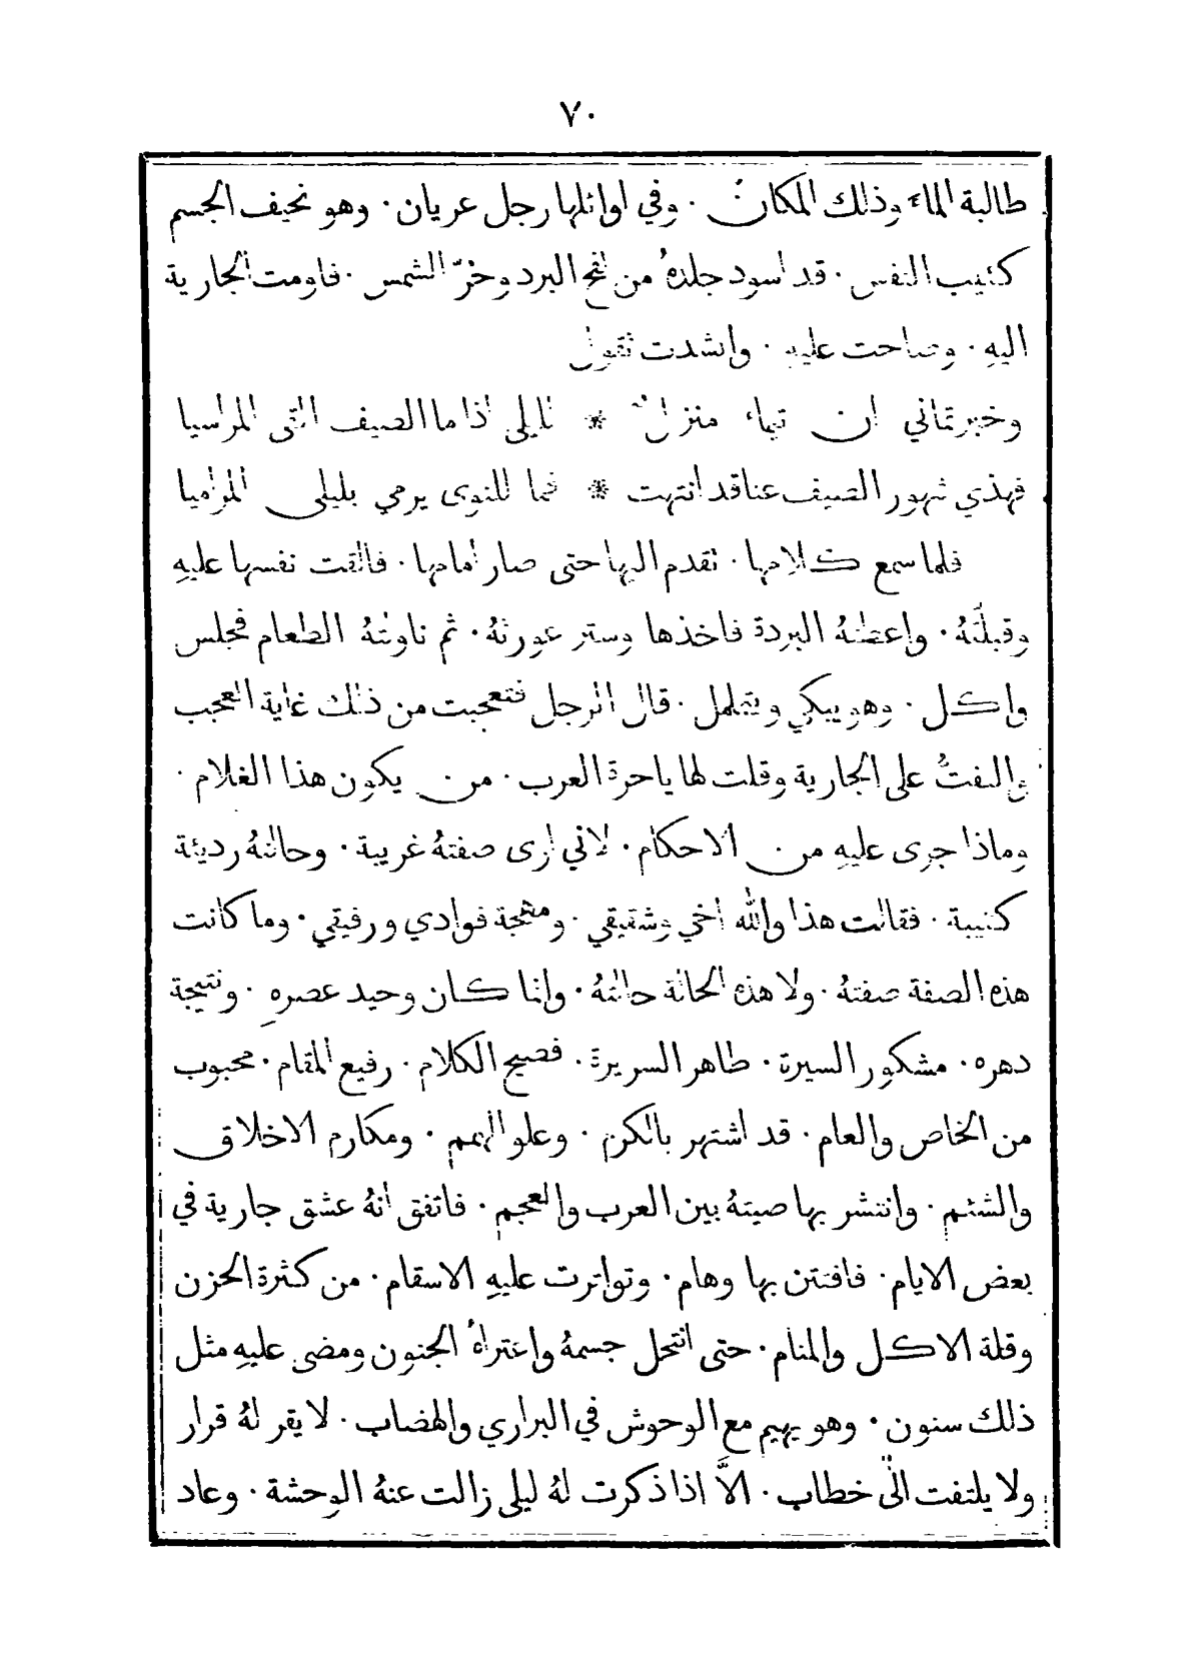 ٧٠
طالبة الماء وذلك المكان ٠ وفي اوائلها رجل عريان ٠ وهو نحيف الجسم
كئيب النفس ٠ قد اسود جلدهُ من لفح البرد وحرّ الشمس ٠ فاومت الجارية
اليهِ ٠ وصاحت عليهِ ٠ وانشدت نقول
وخبرتماني ان تيماء منزلٌ * لليلى اذا ما الصيف القى المراسيا
فهذي شهور الصيف عنا قد انتهت * فما للنوى يرمي بليلى المراميا
فلما سمع كلامها ٠ تقدم اليها حتى صار امامها ٠ فالقت نفسها عليهِ
وقبلَّتهُ ٠ واعطتهُ البردة فاخذها وستر عورتهُ ٠ ثم ناولتهُ الطعام فجلس
واكل ٠ وهو يبكي ويتململ ٠ قال الرجل فتعجبت من ذلك غاية العجب
والتفتُّ على الجارية وقلت لها ياحرة العرب ٠ من يكون هذا الغلام ٠
وماذا جرى عليهِ من الاحكام ٠ لاني ارى صفتهُ غريبة ٠ وحالتهُ رديئة
كئيبة ٠ فقالت هذا والله اخي وشقيقي ٠ ومهجة فوادي ورفيقي ٠ وما كانت
هذه الصفة صفتهُ ٠ ولا هذه الحالة حالتهُ ٠ وانما كان وحيد عصرهِ ٠ ونتيجة
دهره ٠ مشكور السيرة ٠ طاهر السريرة ٠ فصيح الكلام ٠ رفيع المقام ٠ محبوب
من الخاص والعام ٠ قد اشتهر بالكرم ٠ وعلو الهمم ٠ ومكارم الاخلاق
والشئم ٠ وانتشر بها صيتهُ بين العرب والعجم ٠ فاتفق انهُ عشق جارية في
بعض الايام ٠ فافتتن بها وهام ٠ وتواترت عليهِ الاسقام ٠ من كثرة الحزن
وقلة الاكل والمنام ٠ حتى انتحل جسمهُ واعتراهُ الجنون ومضى عليهِ مثل
ذلك سنون ٠ وهو يهيم مع الوحوش في البراري والهضاب ٠ لا يقر لهُ قرار
ولا يلتفت الى خطاب ٠ الاَّ اذا ذكرت لهُ ليلى زالت عنهُ الوحشة ٠ وعاد